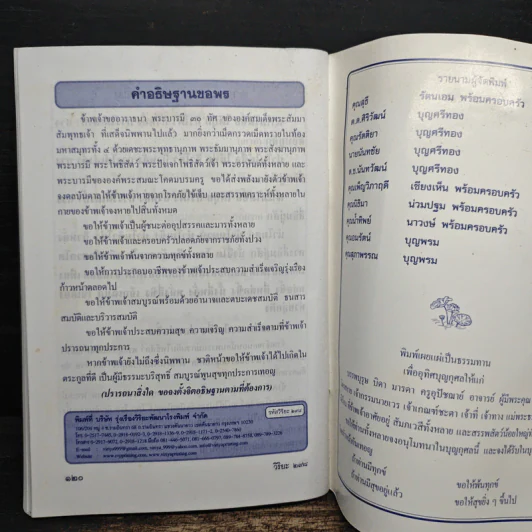 คำอธิษฐานขอพร
ข้าพเจ้าขออาราธนา พระบารมี ๓๐ ทัศ ขององค์สมเด็จพระสัมมา
สัมพุทธเจ้า ที่เสด็จนิพพานไปแล้ว มากยิ่งกว่าเม็ดกรวดเม็ดทรายในท้อง
มหาสมุทรทั้ง ๔ ด้วยเดชะพระพุทธานุภาพ พระธัมมานุภาพ พระสังฆานุภาพ
พระบารมี พระโพธิสัตว์ พระปัจเจกโพธิสัตว์เจ้า พระอรหันต์ทั้งหลาย และ
พระบารมีขององค์พระสมณะโคดมบรมครู ขอได้ส่งพลังมายังตัวข้าพเจ้า
จงดลบันดาลให้ข้าพเจ้าหายจากโรคภัยไข้เจ็บ และสรรพเคราะห์ที่ทั้งหลายใน
กายของข้าพเจ้าจงหายไปสิ้นทั้งหมด
ขอให้ข้าพเจ้าเป็นผู้ชนะต่ออุปสรรคและมารทั้งหลาย
ขอให้ข้าพเจ้าและครอบครัวปลอดภัยจากราชภัยทั้งปวง
ขอให้ข้าพเจ้าพ้นจากความทุกข์ทั้งหลาย
ขอให้การประกอบอาชีพของข้าพเจ้าประสบความสำเร็จเจริญรุ่งเรือง
ก้าวหน้าตลอดไป
ขอให้ข้าพเจ้าสมบูรณ์พร้อมด้วยอำนาจและตบะเดชสมบัติ ธนสาร
สมบัติและบริวารสมบัติ
ขอให้ข้าพเจ้าประสบความสุข ความเจริญ ความสำเร็จตามที่ข้าพเจ้า
ปรารถนาทุกประการ
หากข้าพเจ้ายังไม่ถึงซึ่งนิพพาน ชาติหน้าขอให้ข้าพเจ้าได้ไปเกิดใน
ตระกูลที่ดี เป็นผู้มีธรรมะบริสุทธิ์ สมบูรณ์พูนสุขทุกประการเทอญ
(ปรารถนาสิ่งใด ขอจงตั้งจิตอธิษฐานตามที่ต้องการ)
พิมพ์ที่ บริษัท รุ่งเรืองวิริยะพัฒนาโรงพิมพ์ จำกัด
E-mail
๑๒๐
วิริยะ
รายนามผู้จัดพิมพ์
คุณสุธี รัตนเอม พร้อมครอบครัว
ด.ต.ศิริวัฒน์ บุญศรีทอง
คุณรัตติยา บุญศรีทอง
นายนันทชัย บุญศรีทอง
ด.ช.นันทวัฒน์ บุญศรีทอง
คุณเพ็ญวิภาฤดี เชียงเห็น พร้อมครอบครัว
คุณนิธิมา น่วมปฐม พร้อมครอบครัว
คุณน้ำทิพย์ นาวงษ์ พร้อมครอบครัว
คุณอมรรัตน์ บุญพรม
คุณสุภาพรรณ บุญพรม
พิมพ์เผยแผ่เป็นธรรมทาน
เพื่ออุทิศบุญกุศลให้แก่
บรรพบุรุษ บิดา มารดา ครูอุปัชฌาย์ อาจารย์ ผู้มีพระคุณ
เจ้ากรรมนายเวร เจ้าเกณฑ์ชะตา เจ้าที่ เจ้าทาง แม่พระธรณี
ที่ข้าพเจ้าอาศัยอยู่ สัมภเวสีทั้งหลาย และสรรพสัตว์น้อยใหญ่
ให้ท่านทั้งหลายจงอนุโมทนาในบุญกุศลนี้ และจงได้รับในบุญ
ถ้าท่านมีทุกข์ ขอให้พ้นทุกข์
ถ้าท่านมีสุขอยู่แล้ว ขอให้สุขยิ่ง ๆ ขึ้นไป